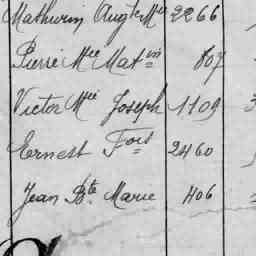 Mathurin Aug.te M.ie 2266
Pierre M.ie Mat.in 807
Victor M.ie Joseph 1109
Ernest F.ois 2460
Jean B.te Marie 406